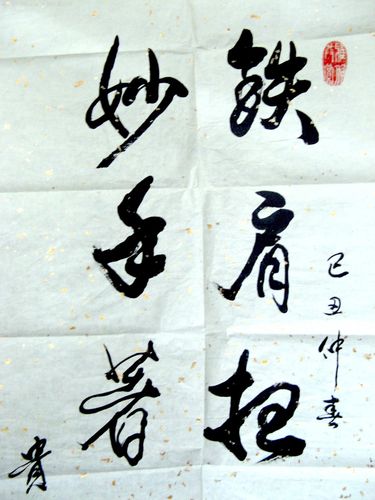 己丑仲春
鉄肩担
妙手著
貴